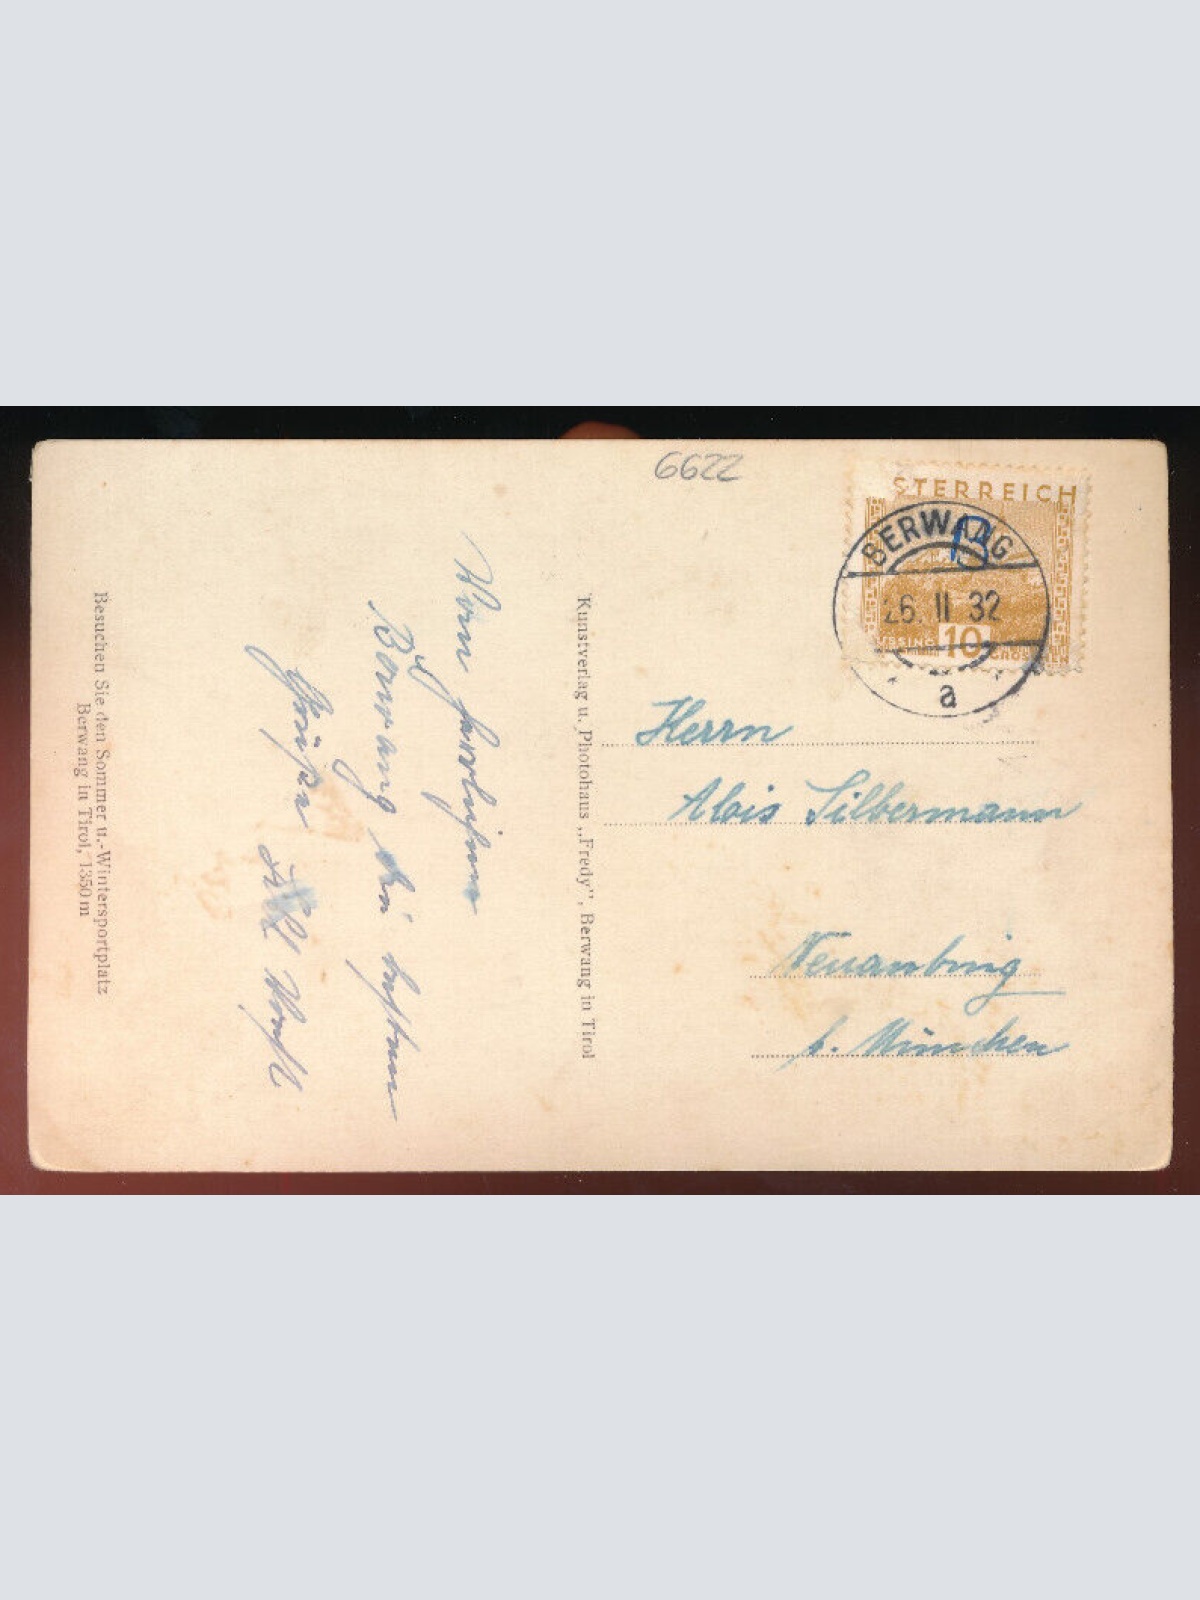 6622
STERREICH
BERWANG
26. II 32
a
B
10
Herrn
Alois Silbermann
Neuaubing
b. München
Kunstverlag u. Photohaus „Fredy", Berwang in Tirol
Vom herrlichen
Berwang die besten
Grüße
Besuchen Sie den Sommer u.-Wintersportplatz
Berwang in Tirol, 1350 m